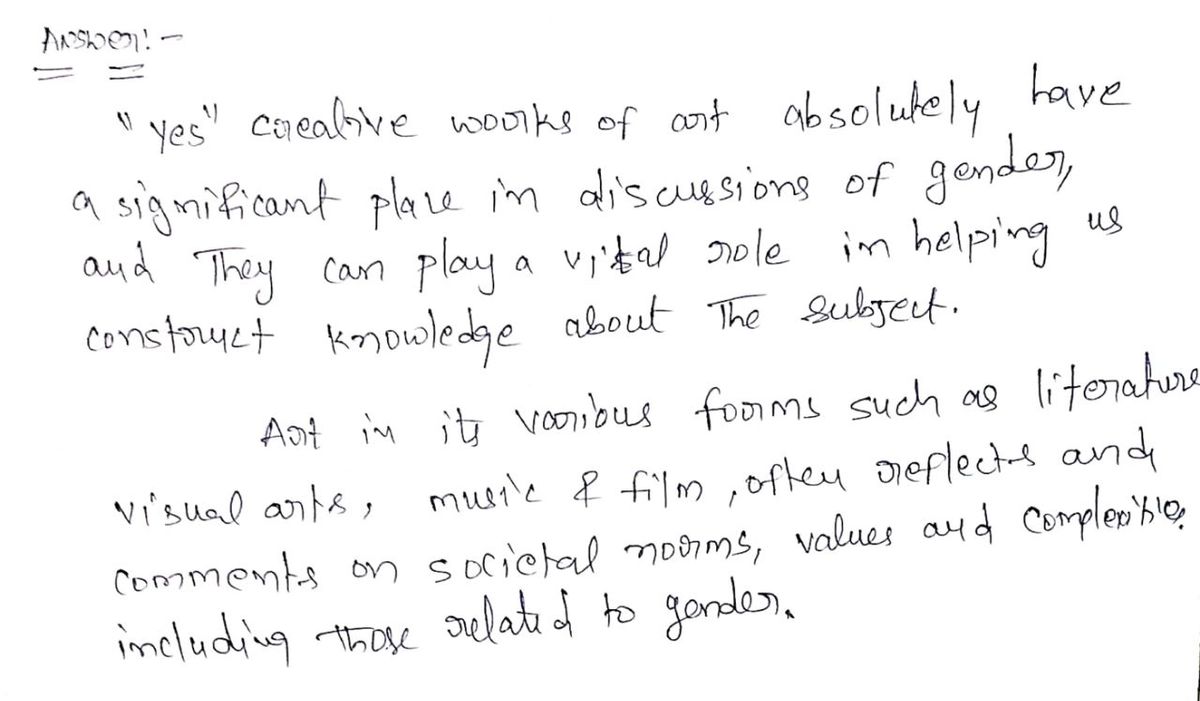 Answer:-
"yes" creative works of art absolutely have
a significant place in discussions of gender,
and They can play a vital role in helping us
construct knowledge about The subject.
Art in its various forms such as literature
visual arts, music & film, often reflects and
comments on societal norms, values and complexities,
including those related to gender.